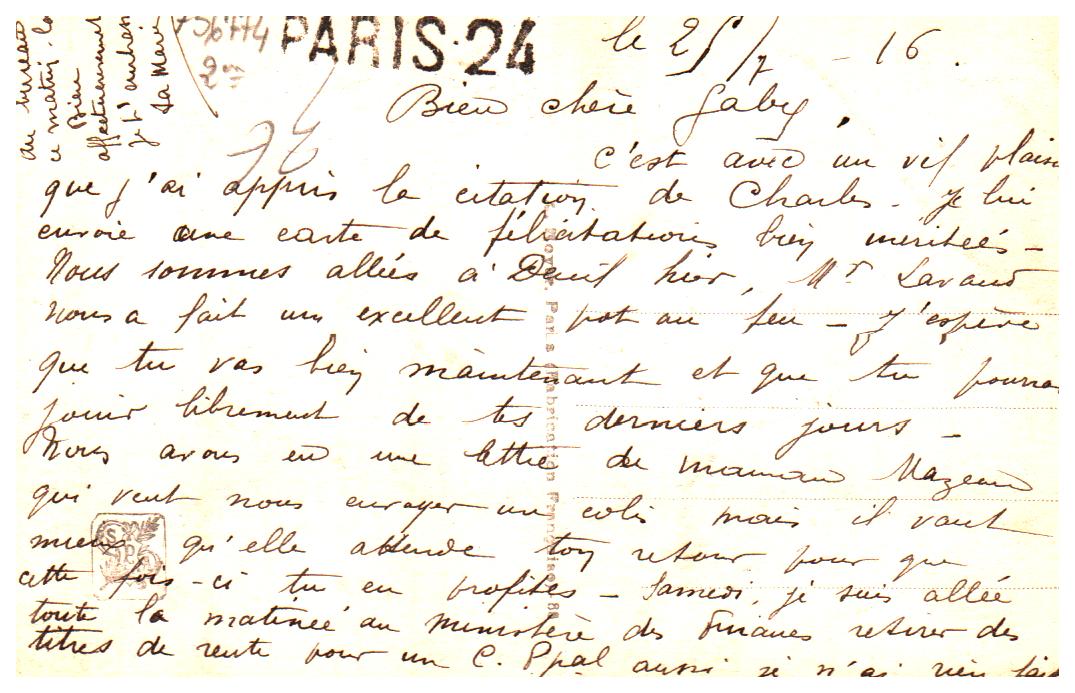 PARIS·24
le 25/7 - 16.
Bien chère Gaby,
C'est avec un vif plaisi
que j'ai appris la citation de Charles - Je lui
envoie une carte de félicitations bien méritées -
Nous sommes allées à Deuil hier, Mr Lavaud
nous a fait un excellent pot au feu - J'espère
que tu vas bien maintenant et que tu pourra
jouir librement de tes derniers jours -
Nous avons eu une lettre de maman Mazeau
qui veut nous envoyer un colis mais il vaut
mieux qu'elle attende ton retour pour que
cette fois-ci tu en profites - Samedi, je suis allée
toute la matinée au ministère des Finances retirer des
titres de rente pour un C. Ppal aussi je n'ai rien fait
au bureau
ce matin-là
Bien
affectueusement
je t'embrasse
Paris (Fabrication Française) 88